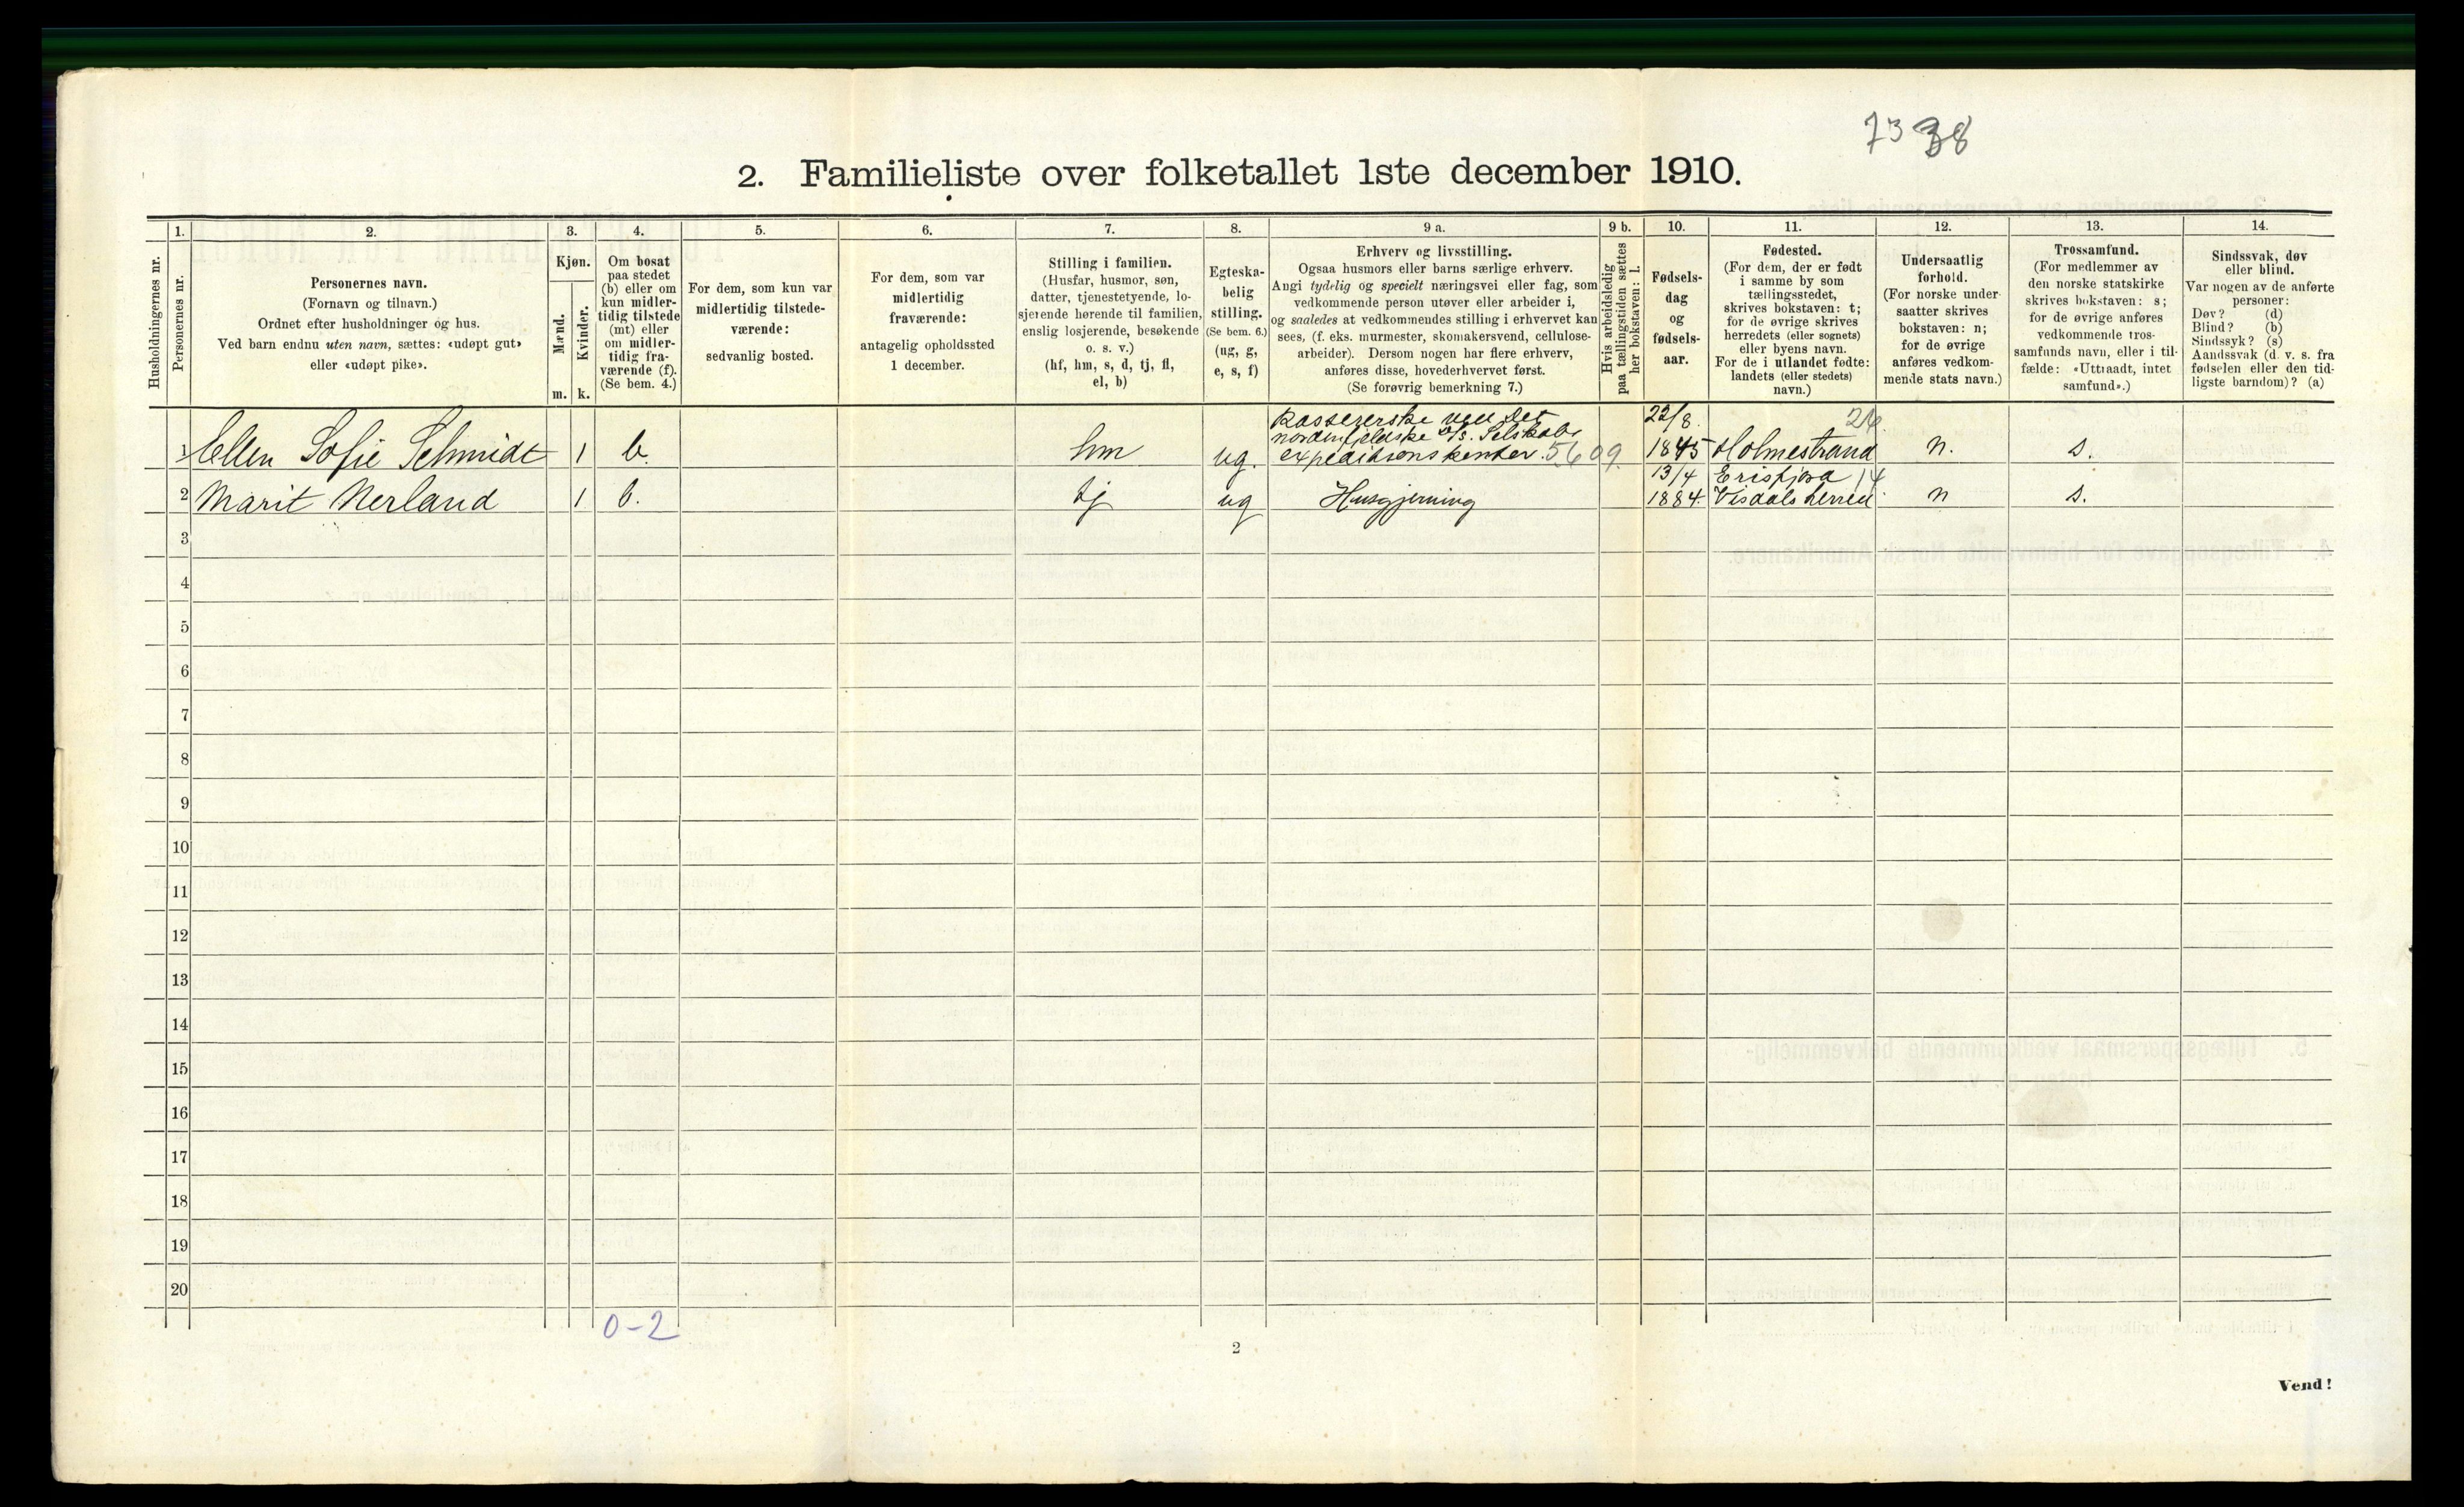 73 38
2. Familieliste over folketallet 1ste december 1910.
Husholdningernes nr.
1.
Personernes nr.
2.
Personernes navn.
(Fornavn og tilnavn.)
Ordnet efter husholdninger og hus.
Ved barn endnu uten navn, sættes: «udøpt gut»
eller «udøpt pike».
3.
Kjøn.
Mænd.
Kvinder.
m. k.
4.
Om bosat
paa stedet
(b) eller om
kun midler-
tidig tilstede
(mt) eller
om midler-
tidig fra-
værende (f).
(Se bem. 4.)
5.
For dem, som kun var
midlertidig tilstede-
værende:
sedvanlig bosted.
6.
For dem, som var
midlertidig
fraværende:
antagelig opholdssted
1 december.
7.
Stilling i familien.
(Husfar, husmor, søn,
datter, tjenestetyende, lo-
sjerende hørende til familien,
enslig losjerende, besøkende
o. s. v.)
(hf, hm, s, d, tj, fl,
el, b)
8.
Egteska-
belig
stilling.
(Se bem. 6.)
(ug, g,
e, s, f)
9 a.
Erhverv og livsstilling.
Ogsaa husmors eller barns særlige erhverv.
Angi tydelig og specielt næringsvei eller fag, som
vedkommende person utøver eller arbeider i,
og saaledes at vedkommendes stilling i erhvervet kan
sees, (f. eks. murmester, skomakersvend, cellulose-
arbeider). Dersom nogen har flere erhverv,
anføres disse, hovederhvervet først.
(Se forøvrig bemerkning 7.)
9 b.
Hvis arbeidsledig
paa tællingstiden sættes
her bokstaven: l.
10.
Fødsels-
dag
og
fødsels-
aar.
11.
Fødested.
(For dem, der er født
i samme by som
tællingsstedet,
skrives bokstaven: t;
for de øvrige skrives
herredets (eller sognets)
eller byens navn.
For de i utlandet fødte:
landets (eller stedets)
navn.)
12.
Undersaatlig
forhold.
(For norske under-
saatter skrives
bokstaven: n;
for de øvrige
anføres vedkom-
mende stats navn.)
13.
Trossamfund.
(For medlemmer av
den norske statskirke
skrives bokstaven: s;
for de øvrige anføres
vedkommende tros-
samfunds navn, eller i til-
fælde: «Uttraadt, intet
samfund».)
14.
Sindssvak, døv
eller blind.
Var nogen av de anførte
personer:
Døv? (d)
Blind? (b)
Sindssyk? (s)
Aandssvak (d. v. s. fra
fødselen eller den tid-
ligste barndom)? (a)
Kassererske ved det 22/8.
nordenfjeldske D/s. Selskabs
1 Ellen Sofie Schmidt 1 b. hm ug. expeditionskontor. 5609. 1845 Holmestrand n. s.
13/4 Erisfjord 14
2 Marit Nerland 1 b. tj ug Husgjerning 1884. Visdals herred n s.
3
4
5
6
7
8
9
10
11
12
13
14
15
16
17
18
19
20
0-2
2
Vend!